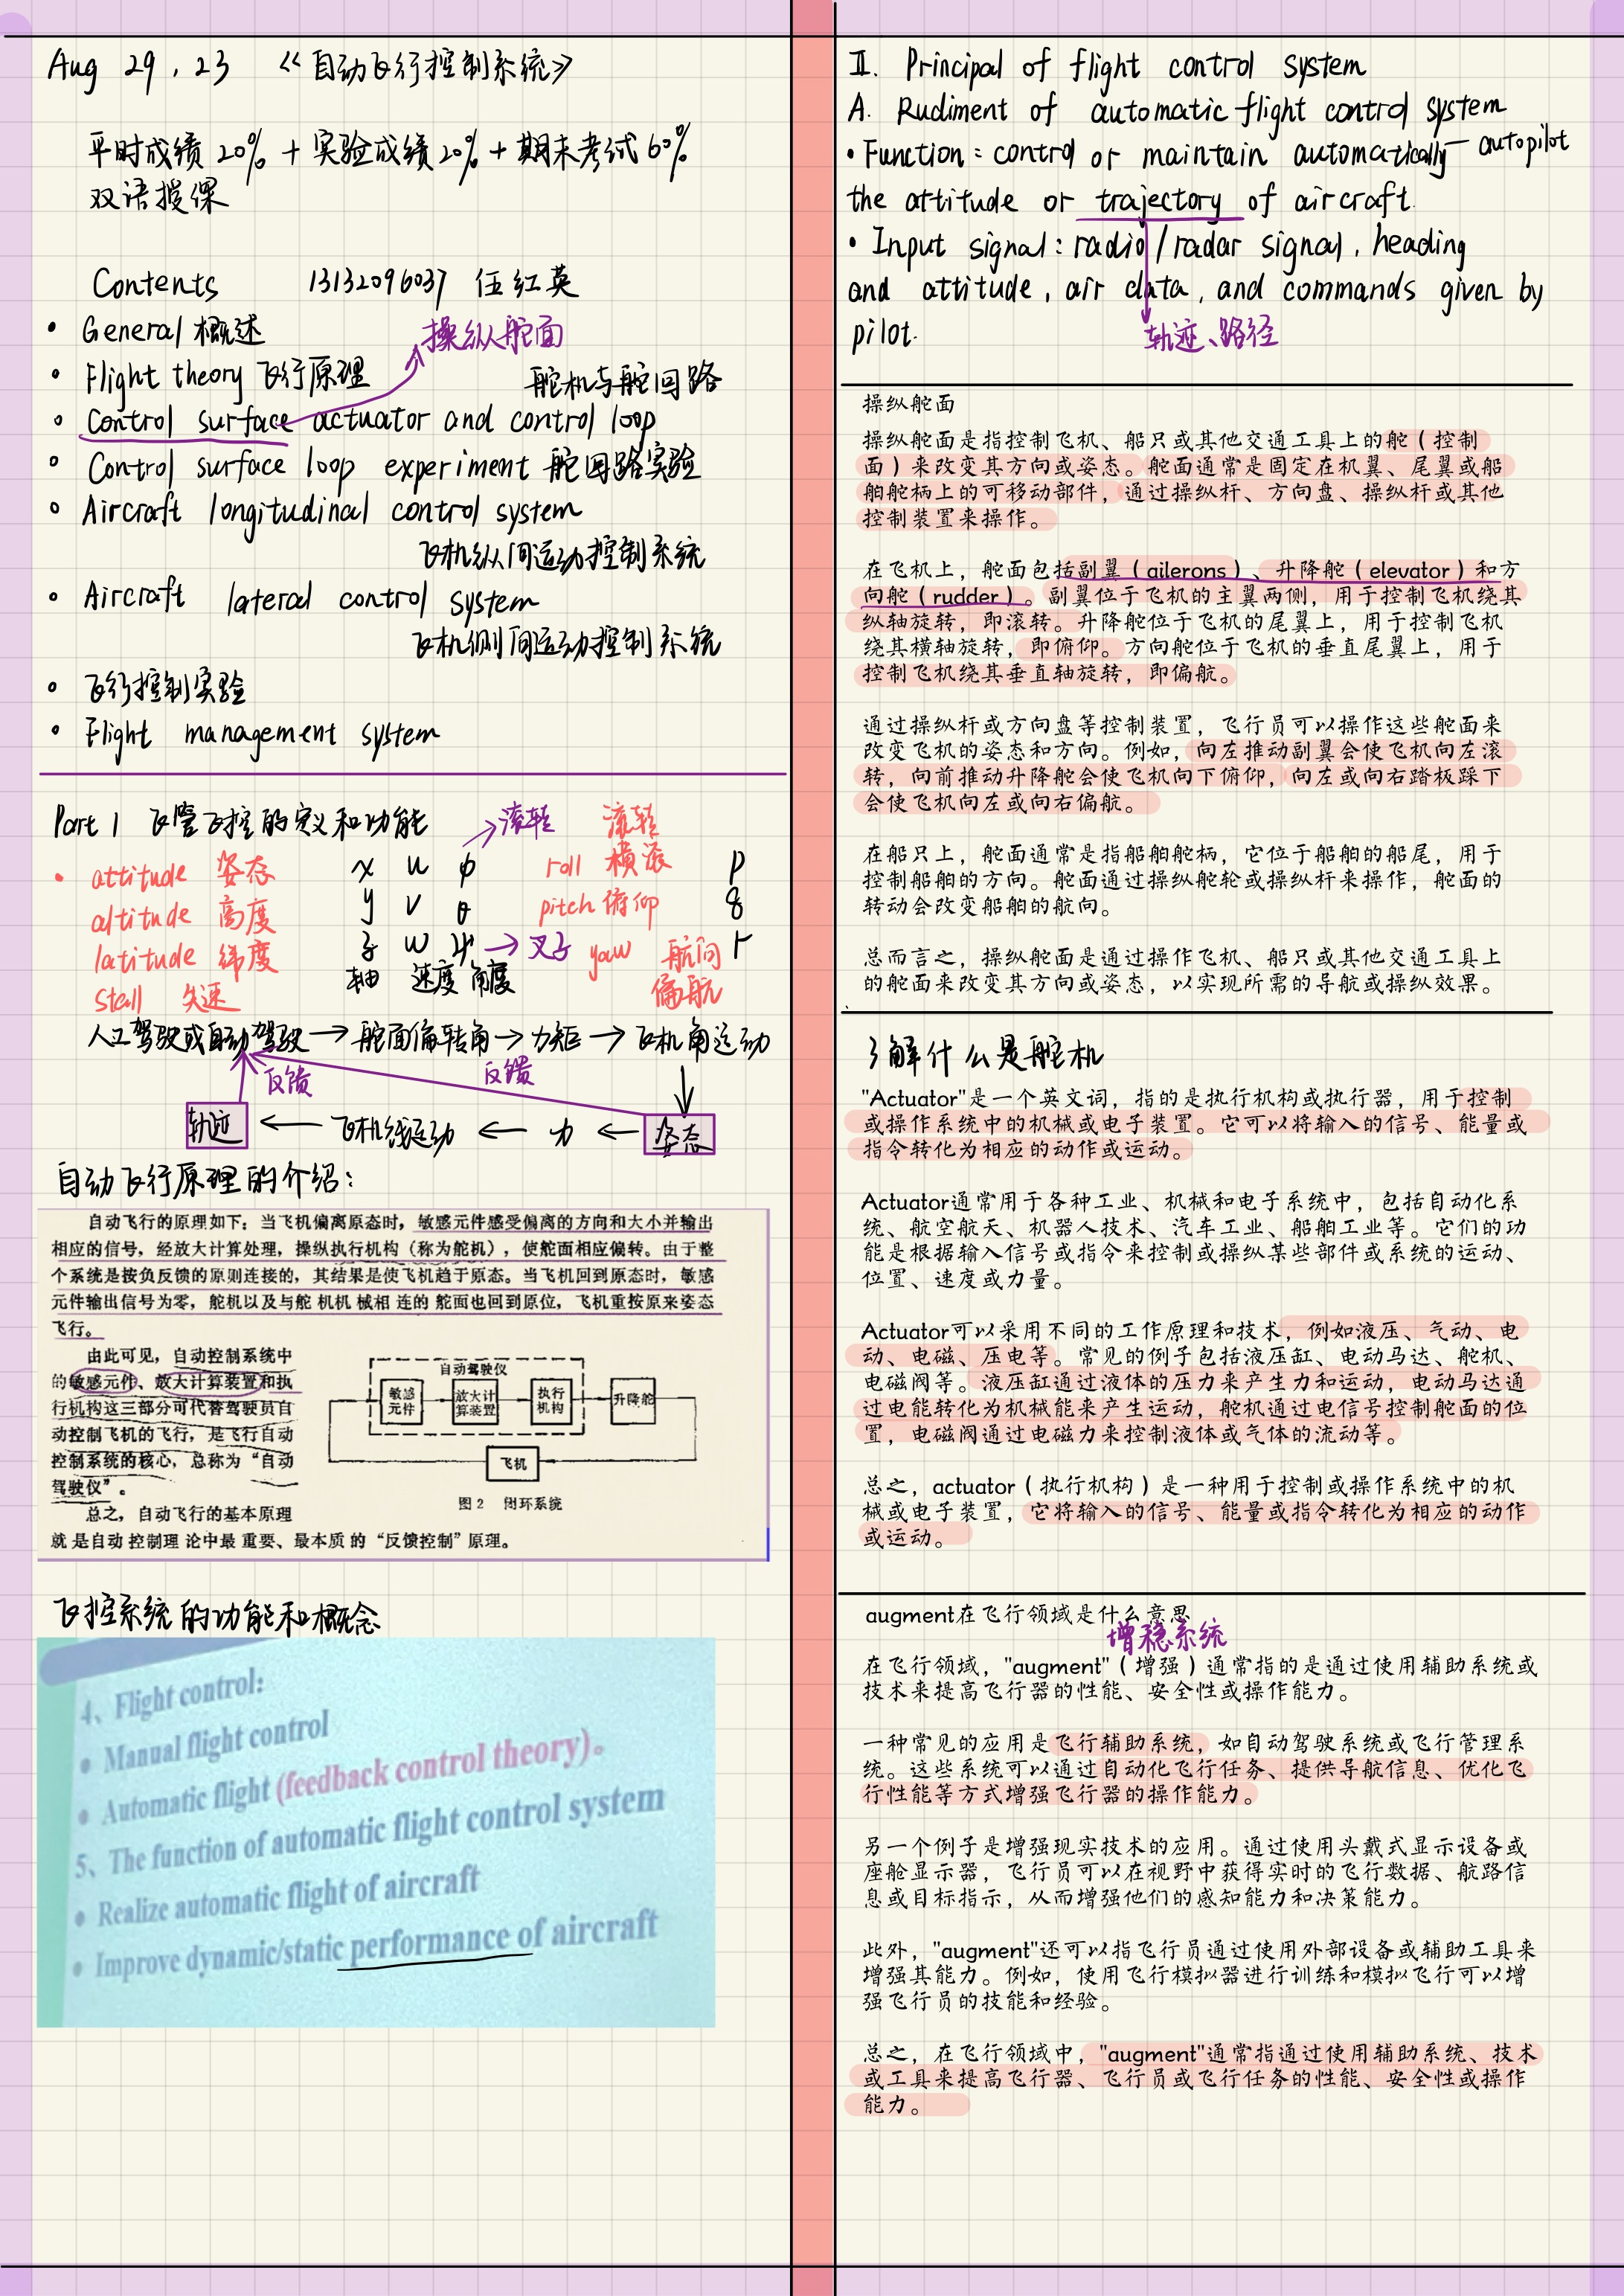 Aug 29, 23 《自动飞行控制系统》
平时成绩 20% + 实验成绩 20% + 期末考试 60%
双语授课
Contents 13132096037 伍红英
• General 概述
操纵舵面
• Flight theory 飞行原理
舵机与舵回路
• Control surface actuator and control loop
• Control surface loop experiment 舵回路实验
• Aircraft longitudinal control system
飞机纵向运动控制系统
• Aircraft lateral control system
飞机侧向运动控制系统
• 飞行控制实验
• Flight management system
Part 1 飞管飞控的定义和功能
• attitude 姿态
altitude 高度
latitude 纬度
stall 失速
x u φ → 滚转 滚转 roll 横滚 p
y v θ pitch 俯仰 q
z w ψ → 叉子 yaw 航向 r
轴 速度 角度 偏航
人工驾驶或自动驾驶 → 舵面偏转角 → 力矩 → 飞机角运动
反馈 反馈
轨迹 ← 飞机线运动 ← 力 ← 姿态
自动飞行原理的介绍:
自动飞行的原理如下:当飞机偏离原态时,敏感元件感受偏离的方向和大小并输出
相应的信号,经放大计算处理,操纵执行机构(称为舵机),使舵面相应偏转。由于整
个系统是按负反馈的原则连接的,其结果是使飞机趋于原态。当飞机回到原态时,敏感
元件输出信号为零,舵机以及与舵机机械相连的舵面也回到原位,飞机重按原来姿态
飞行。
由此可见,自动控制系统中
的敏感元件、放大计算装置和执
行机构这三部分可代替驾驶员自
动控制飞机的飞行,是飞行自动
控制系统的核心,总称为“自动
驾驶仪”。
总之,自动飞行的基本原理
就是自动控制理论中最重要、最本质的“反馈控制”原理。
自动驾驶仪
敏感
元件
放大计
算装置
执行
机构
升降舵
飞机
图 2 闭环系统
飞控系统的功能和概念
4、Flight control:
● Manual flight control
● Automatic flight (feedback control theory)。
5、The function of automatic flight control system
● Realize automatic flight of aircraft
● Improve dynamic/static performance of aircraft
Ⅱ. Principal of flight control system
A. Rudiment of automatic flight control system
• Function: control or maintain automatically — autopilot
the attitude or trajectory of aircraft.
• Input signal: radio/radar signal, heading
and attitude, air data, and commands given by
pilot.
轨迹、路径
操纵舵面
操纵舵面是指控制飞机、船只或其他交通工具上的舵(控制
面)来改变其方向或姿态。舵面通常是固定在机翼、尾翼或船
舶舵柄上的可移动部件,通过操纵杆、方向盘、操纵杆或其他
控制装置来操作。
在飞机上,舵面包括副翼(ailerons)、升降舵(elevator)和方
向舵(rudder)。副翼位于飞机的主翼两侧,用于控制飞机绕其
纵轴旋转,即滚转。升降舵位于飞机的尾翼上,用于控制飞机
绕其横轴旋转,即俯仰。方向舵位于飞机的垂直尾翼上,用于
控制飞机绕其垂直轴旋转,即偏航。
通过操纵杆或方向盘等控制装置,飞行员可以操作这些舵面来
改变飞机的姿态和方向。例如,向左推动副翼会使飞机向左滚
转,向前推动升降舵会使飞机向下俯仰,向左或向右踏板踩下
会使飞机向左或向右偏航。
在船只上,舵面通常是指船舶舵柄,它位于船舶的船尾,用于
控制船舶的方向。舵面通过操纵舵轮或操纵杆来操作,舵面的
转动会改变船舶的航向。
总而言之,操纵舵面是通过操作飞机、船只或其他交通工具上
的舵面来改变其方向或姿态,以实现所需的导航或操纵效果。
了解什么是舵机
"Actuator"是一个英文词,指的是执行机构或执行器,用于控制
或操作系统中的机械或电子装置。它可以将输入的信号、能量或
指令转化为相应的动作或运动。
Actuator通常用于各种工业、机械和电子系统中,包括自动化系
统、航空航天、机器人技术、汽车工业、船舶工业等。它们的功
能是根据输入信号或指令来控制或操纵某些部件或系统的运动、
位置、速度或力量。
Actuator可以采用不同的工作原理和技术,例如液压、气动、电
动、电磁、压电等。常见的例子包括液压缸、电动马达、舵机、
电磁阀等。液压缸通过液体的压力来产生力和运动,电动马达通
过电能转化为机械能来产生运动,舵机通过电信号控制舵面的位
置,电磁阀通过电磁力来控制液体或气体的流动等。
总之,actuator(执行机构)是一种用于控制或操作系统中的机
械或电子装置,它将输入的信号、能量或指令转化为相应的动作
或运动。
augment在飞行领域是什么意思
增稳系统
在飞行领域,"augment"(增强)通常指的是通过使用辅助系统或
技术来提高飞行器的性能、安全性或操作能力。
一种常见的应用是飞行辅助系统,如自动驾驶系统或飞行管理系
统。这些系统可以通过自动化飞行任务、提供导航信息、优化飞
行性能等方式增强飞行器的操作能力。
另一个例子是增强现实技术的应用。通过使用头戴式显示设备或
座舱显示器,飞行员可以在视野中获得实时的飞行数据、航路信
息或目标指示,从而增强他们的感知能力和决策能力。
此外,"augment"还可以指飞行员通过使用外部设备或辅助工具来
增强其能力。例如,使用飞行模拟器进行训练和模拟飞行可以增
强飞行员的技能和经验。
总之,在飞行领域中,"augment"通常指通过使用辅助系统、技术
或工具来提高飞行器、飞行员或飞行任务的性能、安全性或操作
能力。